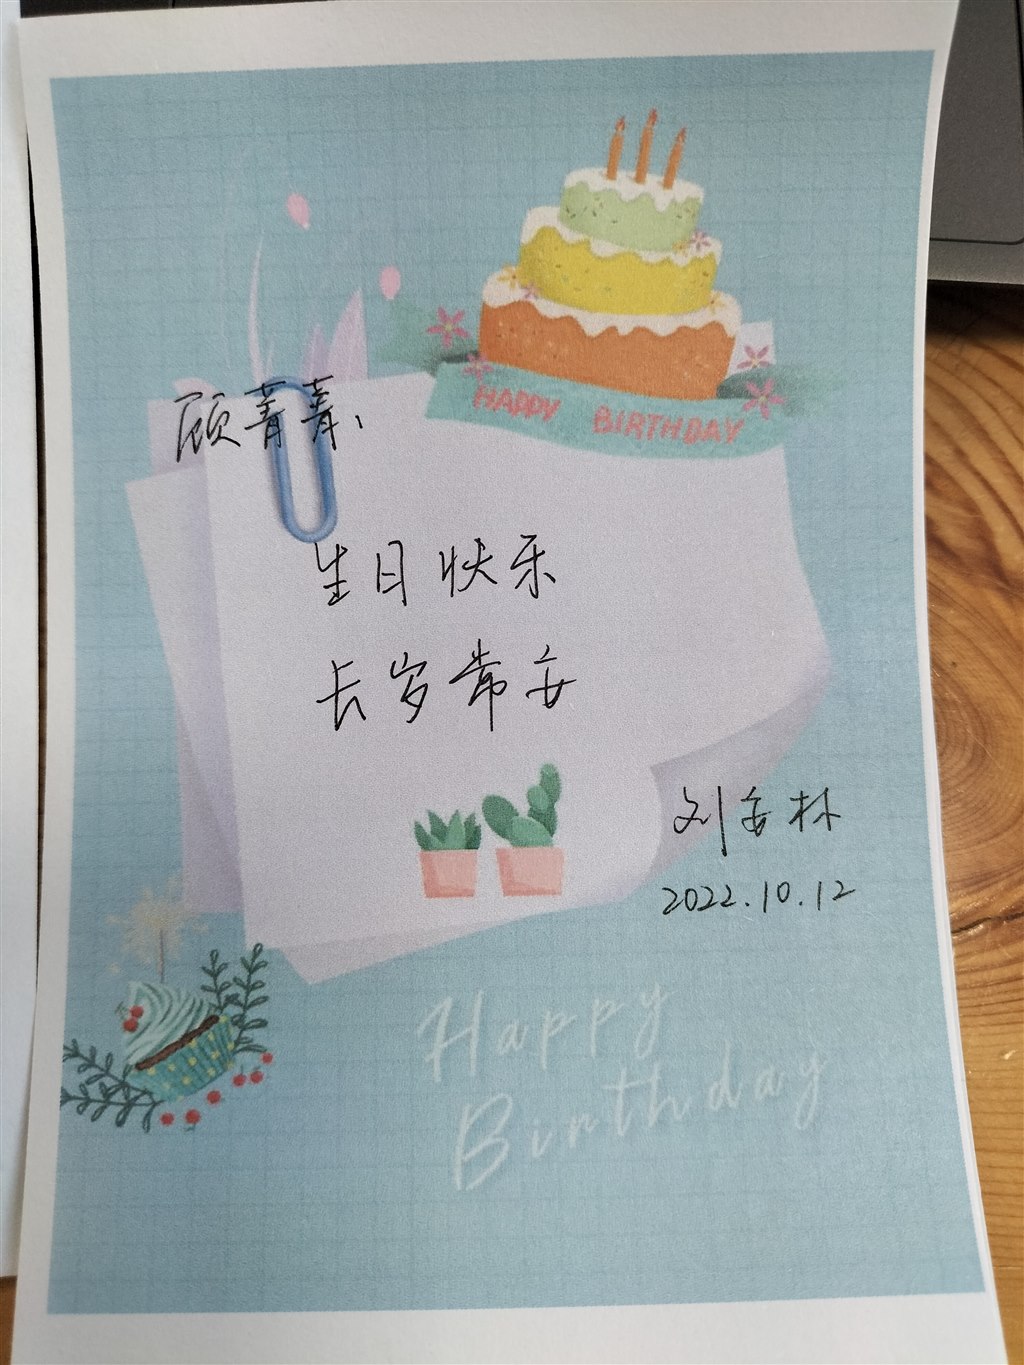 HAPPY BIRTHDAY
顾菁菁、
生日快乐
长岁常安
刘安林
2022.10.12
Happy
Birthday